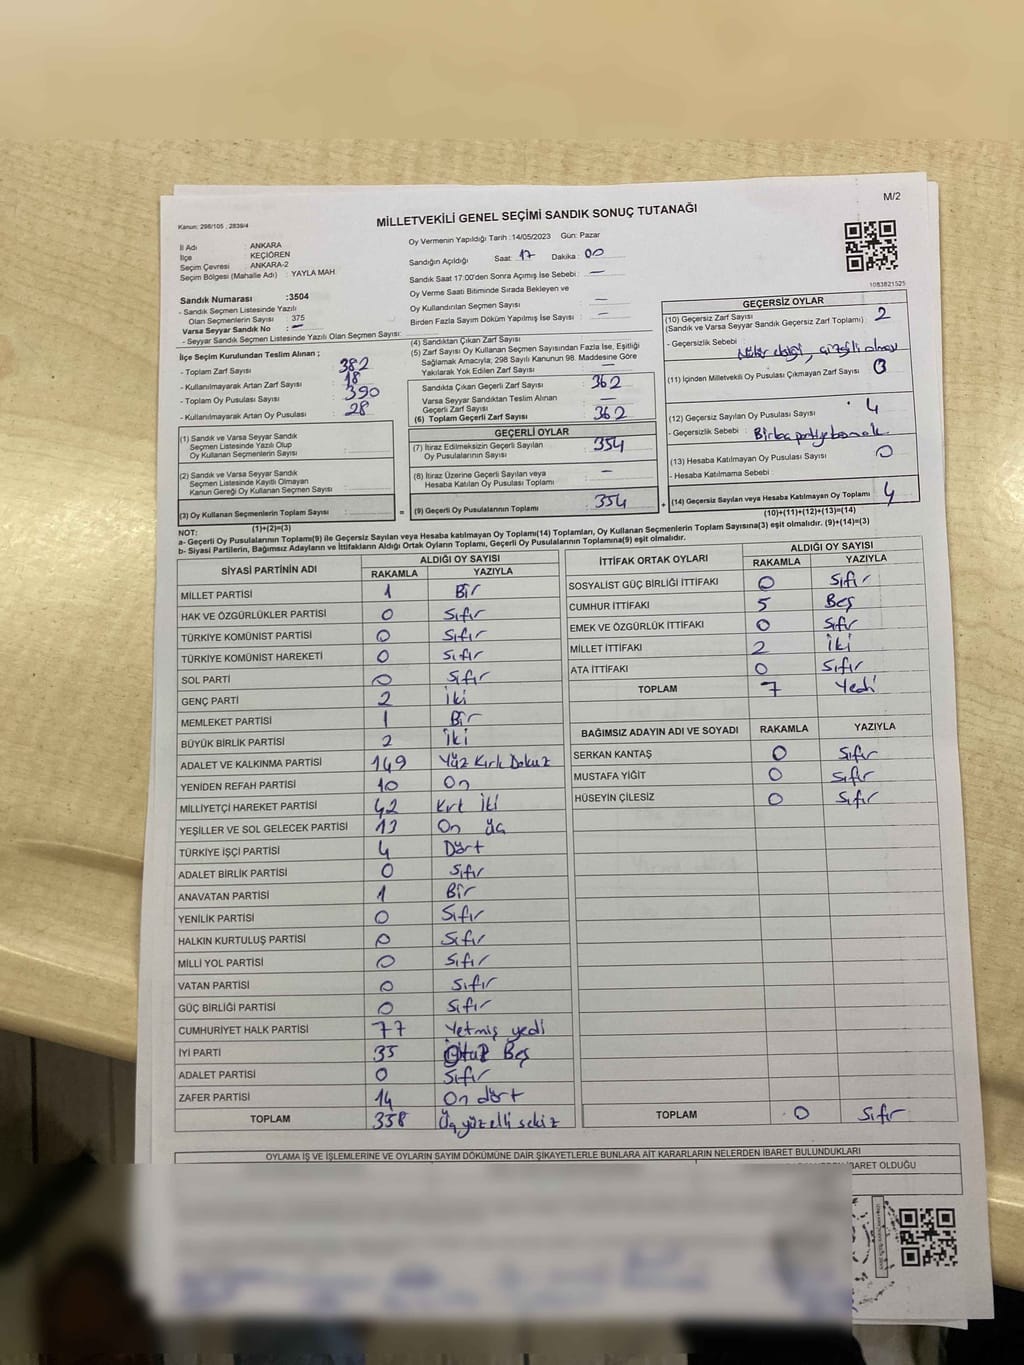 M/2
Kanun: 298/105 ; 2839/4
MİLLETVEKİLİ GENEL SEÇİMİ SANDIK SONUÇ TUTANAĞI
İl Adı : ANKARA
İlçe : KEÇİÖREN
Seçim Çevresi : ANKARA-2
Seçim Bölgesi (Mahalle Adı) : YAYLA MAH.
Sandık Numarası :3504
- Sandık Seçmen Listesinde Yazılı
Olan Seçmenlerin Sayısı : 375
Varsa Seyyar Sandık No : —
- Seyyar Sandık Seçmen Listesinde Yazılı Olan Seçmen Sayısı:
Oy Vermenin Yapıldığı Tarih :14/05/2023 Gün: Pazar
Sandığın Açıldığı Saat: 17 Dakika : 00
Sandık Saat 17:00'den Sonra Açılmış İse Sebebi : —
Oy Verme Saati Bitiminde Sırada Bekleyen ve
Oy Kullandırılan Seçmen Sayısı : —
Birden Fazla Sayım Döküm Yapılmış İse Sayısı : —
1083821525
İlçe Seçim Kurulundan Teslim Alınan ;
- Toplam Zarf Sayısı : 382
- Kullanılmayarak Artan Zarf Sayısı : 18
- Toplam Oy Pusulası Sayısı : 390
- Kullanılmayarak Artan Oy Pusulası : 28
(1) Sandık ve Varsa Seyyar Sandık
Seçmen Listesinde Yazılı Olup
Oy Kullanan Seçmenlerin Sayısı :
(2) Sandık ve Varsa Seyyar Sandık
Seçmen Listesinde Kayıtlı Olmayan
Kanun Gereği Oy Kullanan Seçmen Sayısı :
(3) Oy Kullanan Seçmenlerin Toplam Sayısı :
(1)+(2)=(3)
(4) Sandıktan Çıkan Zarf Sayısı :
(5) Zarf Sayısı Oy Kullanan Seçmen Sayısından Fazla İse, Eşitliği
Sağlamak Amacıyla; 298 Sayılı Kanunun 98. Maddesine Göre
Yakılarak Yok Edilen Zarf Sayısı : —
Sandıkta Çıkan Geçerli Zarf Sayısı : 362
Varsa Seyyar Sandıktan Teslim Alınan
Geçerli Zarf Sayısı : —
(6) Toplam Geçerli Zarf Sayısı : 362
GEÇERLİ OYLAR
(7) İtiraz Edilmeksizin Geçerli Sayılan
Oy Pusulalarının Sayısı : 354
(8) İtiraz Üzerine Geçerli Sayılan veya
Hesaba Katılan Oy Pusulası Toplamı : —
= (9) Geçerli Oy Pusulalarının Toplamı : 354 +
GEÇERSİZ OYLAR
(10) Geçersiz Zarf Sayısı : 2
(Sandık ve Varsa Seyyar Sandık Geçersiz Zarf Toplamı)
- Geçersizlik Sebebi :
(11) İçinden Milletvekili Oy Pusulası Çıkmayan Zarf Sayısı : 0
(12) Geçersiz Sayılan Oy Pusulası Sayısı : 4
- Geçersizlik Sebebi :
(13) Hesaba Katılmayan Oy Pusulası Sayısı : 0
- Hesaba Katılmama Sebebi :
(14) Geçersiz Sayılan veya Hesaba Katılmayan Oy Toplamı : 4
(10)+(11)+(12)+(13)=(14)
NOT:
a- Geçerli Oy Pusulalarının Toplamı(9) ile Geçersiz Sayılan veya Hesaba katılmayan Oy Toplamı(14) Toplamları, Oy Kullanan Seçmenlerin Toplam Sayısına(3) eşit olmalıdır. (9)+(14)=(3)
b- Siyasi Partilerin, Bağımsız Adayların ve İttifakların Aldığı Ortak Oyların Toplamı, Geçerli Oy Pusulalarının Toplamına(9) eşit olmalıdır.
SİYASİ PARTİNİN ADI ALDIĞI OY SAYISI
RAKAMLA YAZIYLA
MİLLET PARTİSİ 1 Bir
HAK VE ÖZGÜRLÜKLER PARTİSİ 0 Sıfır
TÜRKİYE KOMÜNİST PARTİSİ 0 Sıfır
TÜRKİYE KOMÜNİST HAREKETİ 0 Sıfır
SOL PARTİ 0 Sıfır
GENÇ PARTİ 2 İki
MEMLEKET PARTİSİ 1 Bir
BÜYÜK BİRLİK PARTİSİ 2 İki
ADALET VE KALKINMA PARTİSİ 149 Yüz Kırk Dokuz
YENİDEN REFAH PARTİSİ 10 On
MİLLİYETÇİ HAREKET PARTİSİ 42 Kırk İki
YEŞİLLER VE SOL GELECEK PARTİSİ 13 On Üç
TÜRKİYE İŞÇİ PARTİSİ 4 Dört
ADALET BİRLİK PARTİSİ 0 Sıfır
ANAVATAN PARTİSİ 1 Bir
YENİLİK PARTİSİ 0 Sıfır
HALKIN KURTULUŞ PARTİSİ 0 Sıfır
MİLLİ YOL PARTİSİ 0 Sıfır
VATAN PARTİSİ 0 Sıfır
GÜÇ BİRLİĞİ PARTİSİ 0 Sıfır
CUMHURİYET HALK PARTİSİ 77 Yetmiş yedi
İYİ PARTİ 35 Otuz Beş
ADALET PARTİSİ 0 Sıfır
ZAFER PARTİSİ 14 On dört
TOPLAM 358 Üç yüzelli sekiz
İTTİFAK ORTAK OYLARI ALDIĞI OY SAYISI
RAKAMLA YAZIYLA
SOSYALİST GÜÇ BİRLİĞİ İTTİFAKI 0 Sıfır
CUMHUR İTTİFAKI 5 Beş
EMEK VE ÖZGÜRLÜK İTTİFAKI 0 Sıfır
MİLLET İTTİFAKI 2 İki
ATA İTTİFAKI 0 Sıfır
TOPLAM 7 Yedi
BAĞIMSIZ ADAYIN ADI VE SOYADI RAKAMLA YAZIYLA
SERKAN KANTAŞ 0 Sıfır
MUSTAFA YİĞİT 0 Sıfır
HÜSEYİN ÇİLESİZ 0 Sıfır
TOPLAM 0 Sıfır
OYLAMA İŞ VE İŞLEMLERİNE VE OYLARIN SAYIM DÖKÜMÜNE DAİR ŞİKAYETLERLE BUNLARA AİT KARARLARIN NELERDEN İBARET BULUNDUKLARI
İBARET OLDUĞU